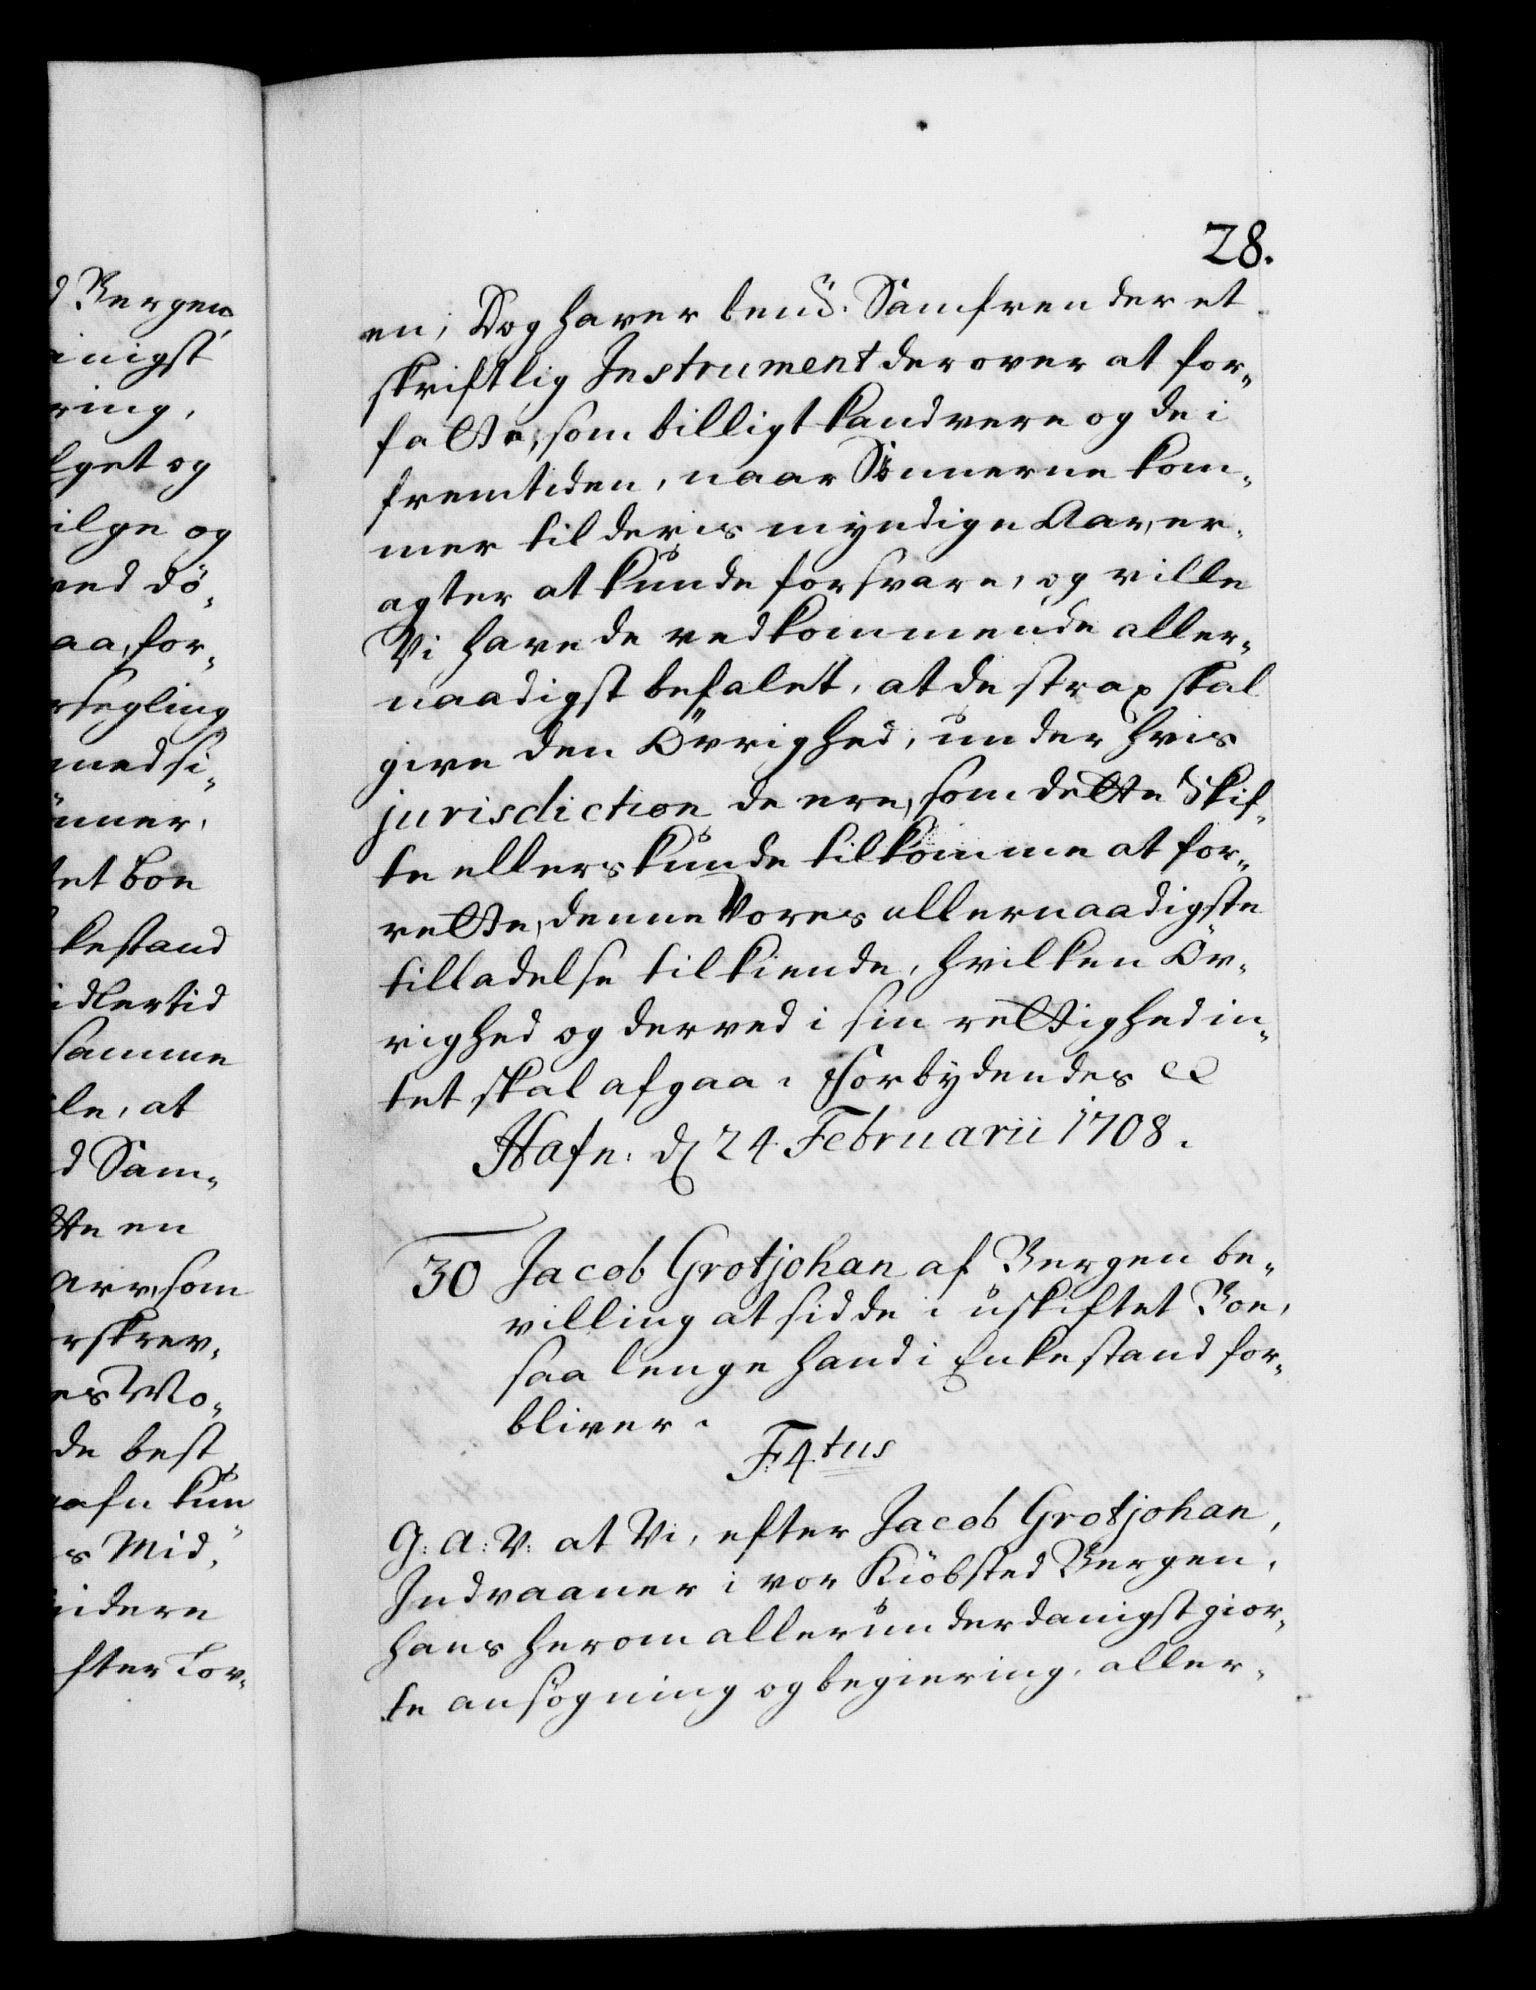 28.
en; Dog haver bemt. Samfrender et
skriftlig Instrument derover at for-
fatte, som billigt kand vere og de i
fremtiden, naar Sönnerne kom-
mer til deris myndige Aar, er-
agter at kunde forsvare, og ville
Vi have de vedkommende aller-
naadigst befalet, at de strax skal
give den Övrighed, under hvis
jurisdiction de ere, som dette Skif-
te ellers kunde tilkomme at for-
rette, denne Vores allernaadigste
tilladelse tilkiende, hvilken Öv-
righed og derved i sin rettighed in-
tet skal afgaa. Forbydendes &
Hafn: d 24 Februarii 1708.
30 Jacob Grotjohan af Bergen be-
villing at sidde i uskiftet Boe,
saa lenge hand i Enkestand for-
bliver.
F. 4tus
G: A: V: at Vi, efter Jacob Grotjohan,
Indvaaner i vor Kiöbsted Bergen,
hans herom allerunderdanigst gior-
te ansögning og begiering, aller-
d Bergen
inigst
ring,
get og
ilge og
ved dö-
aa, for-
segling
med si-
nner,
tet boe
kestand
idlertid
samme
le, at
d Sam-
tte en
arv, som
rskrev-
es Mo-
de best
kun
s Mid-
idere
fter Lov-